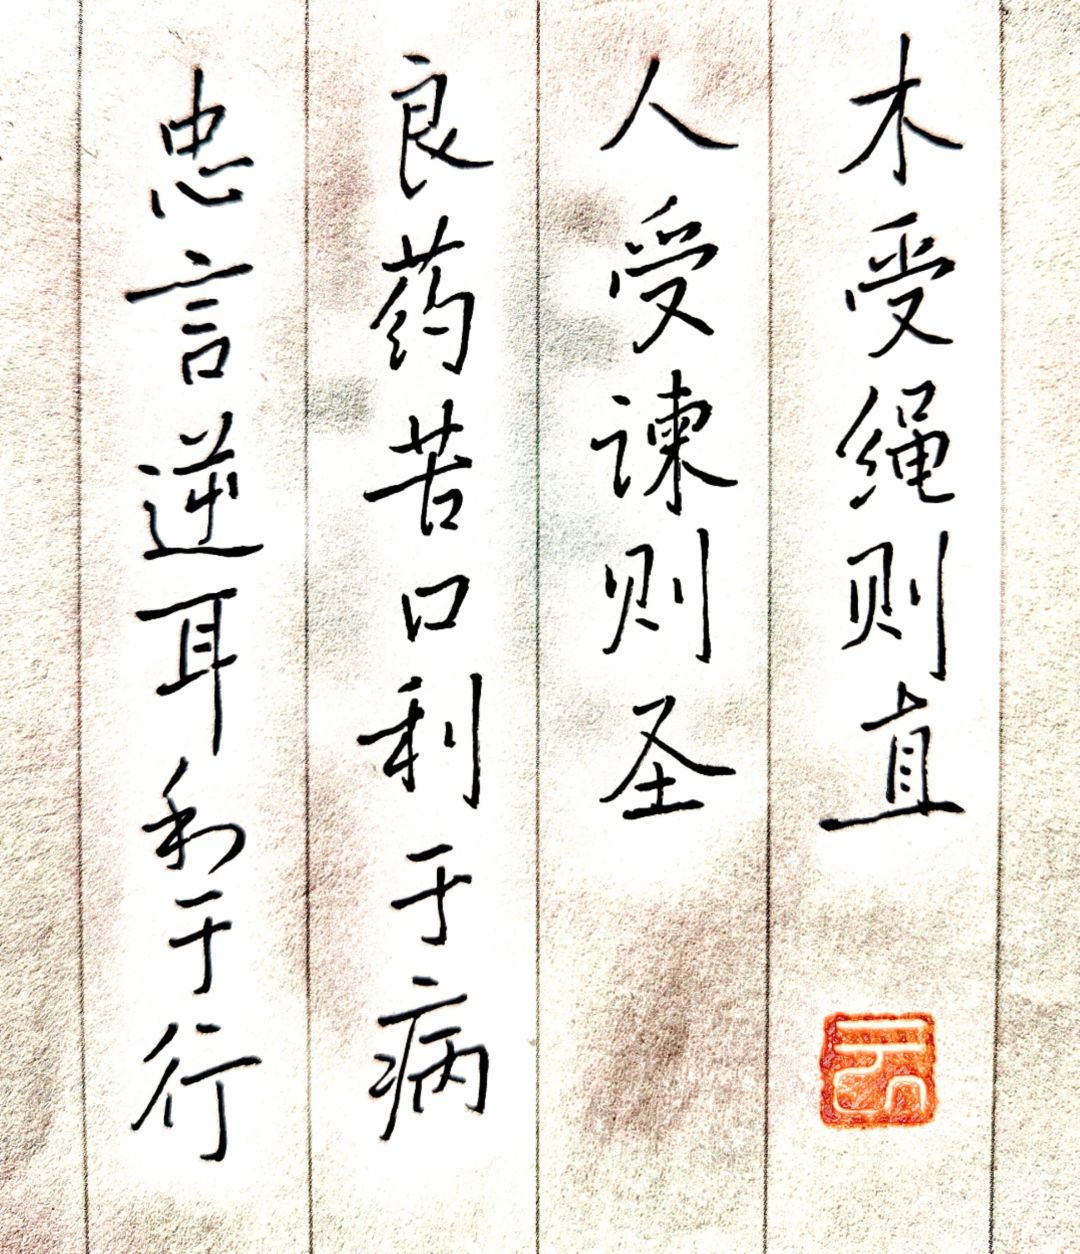 木受绳则直
人受谏则圣
良药苦口利于病
忠言逆耳利于行